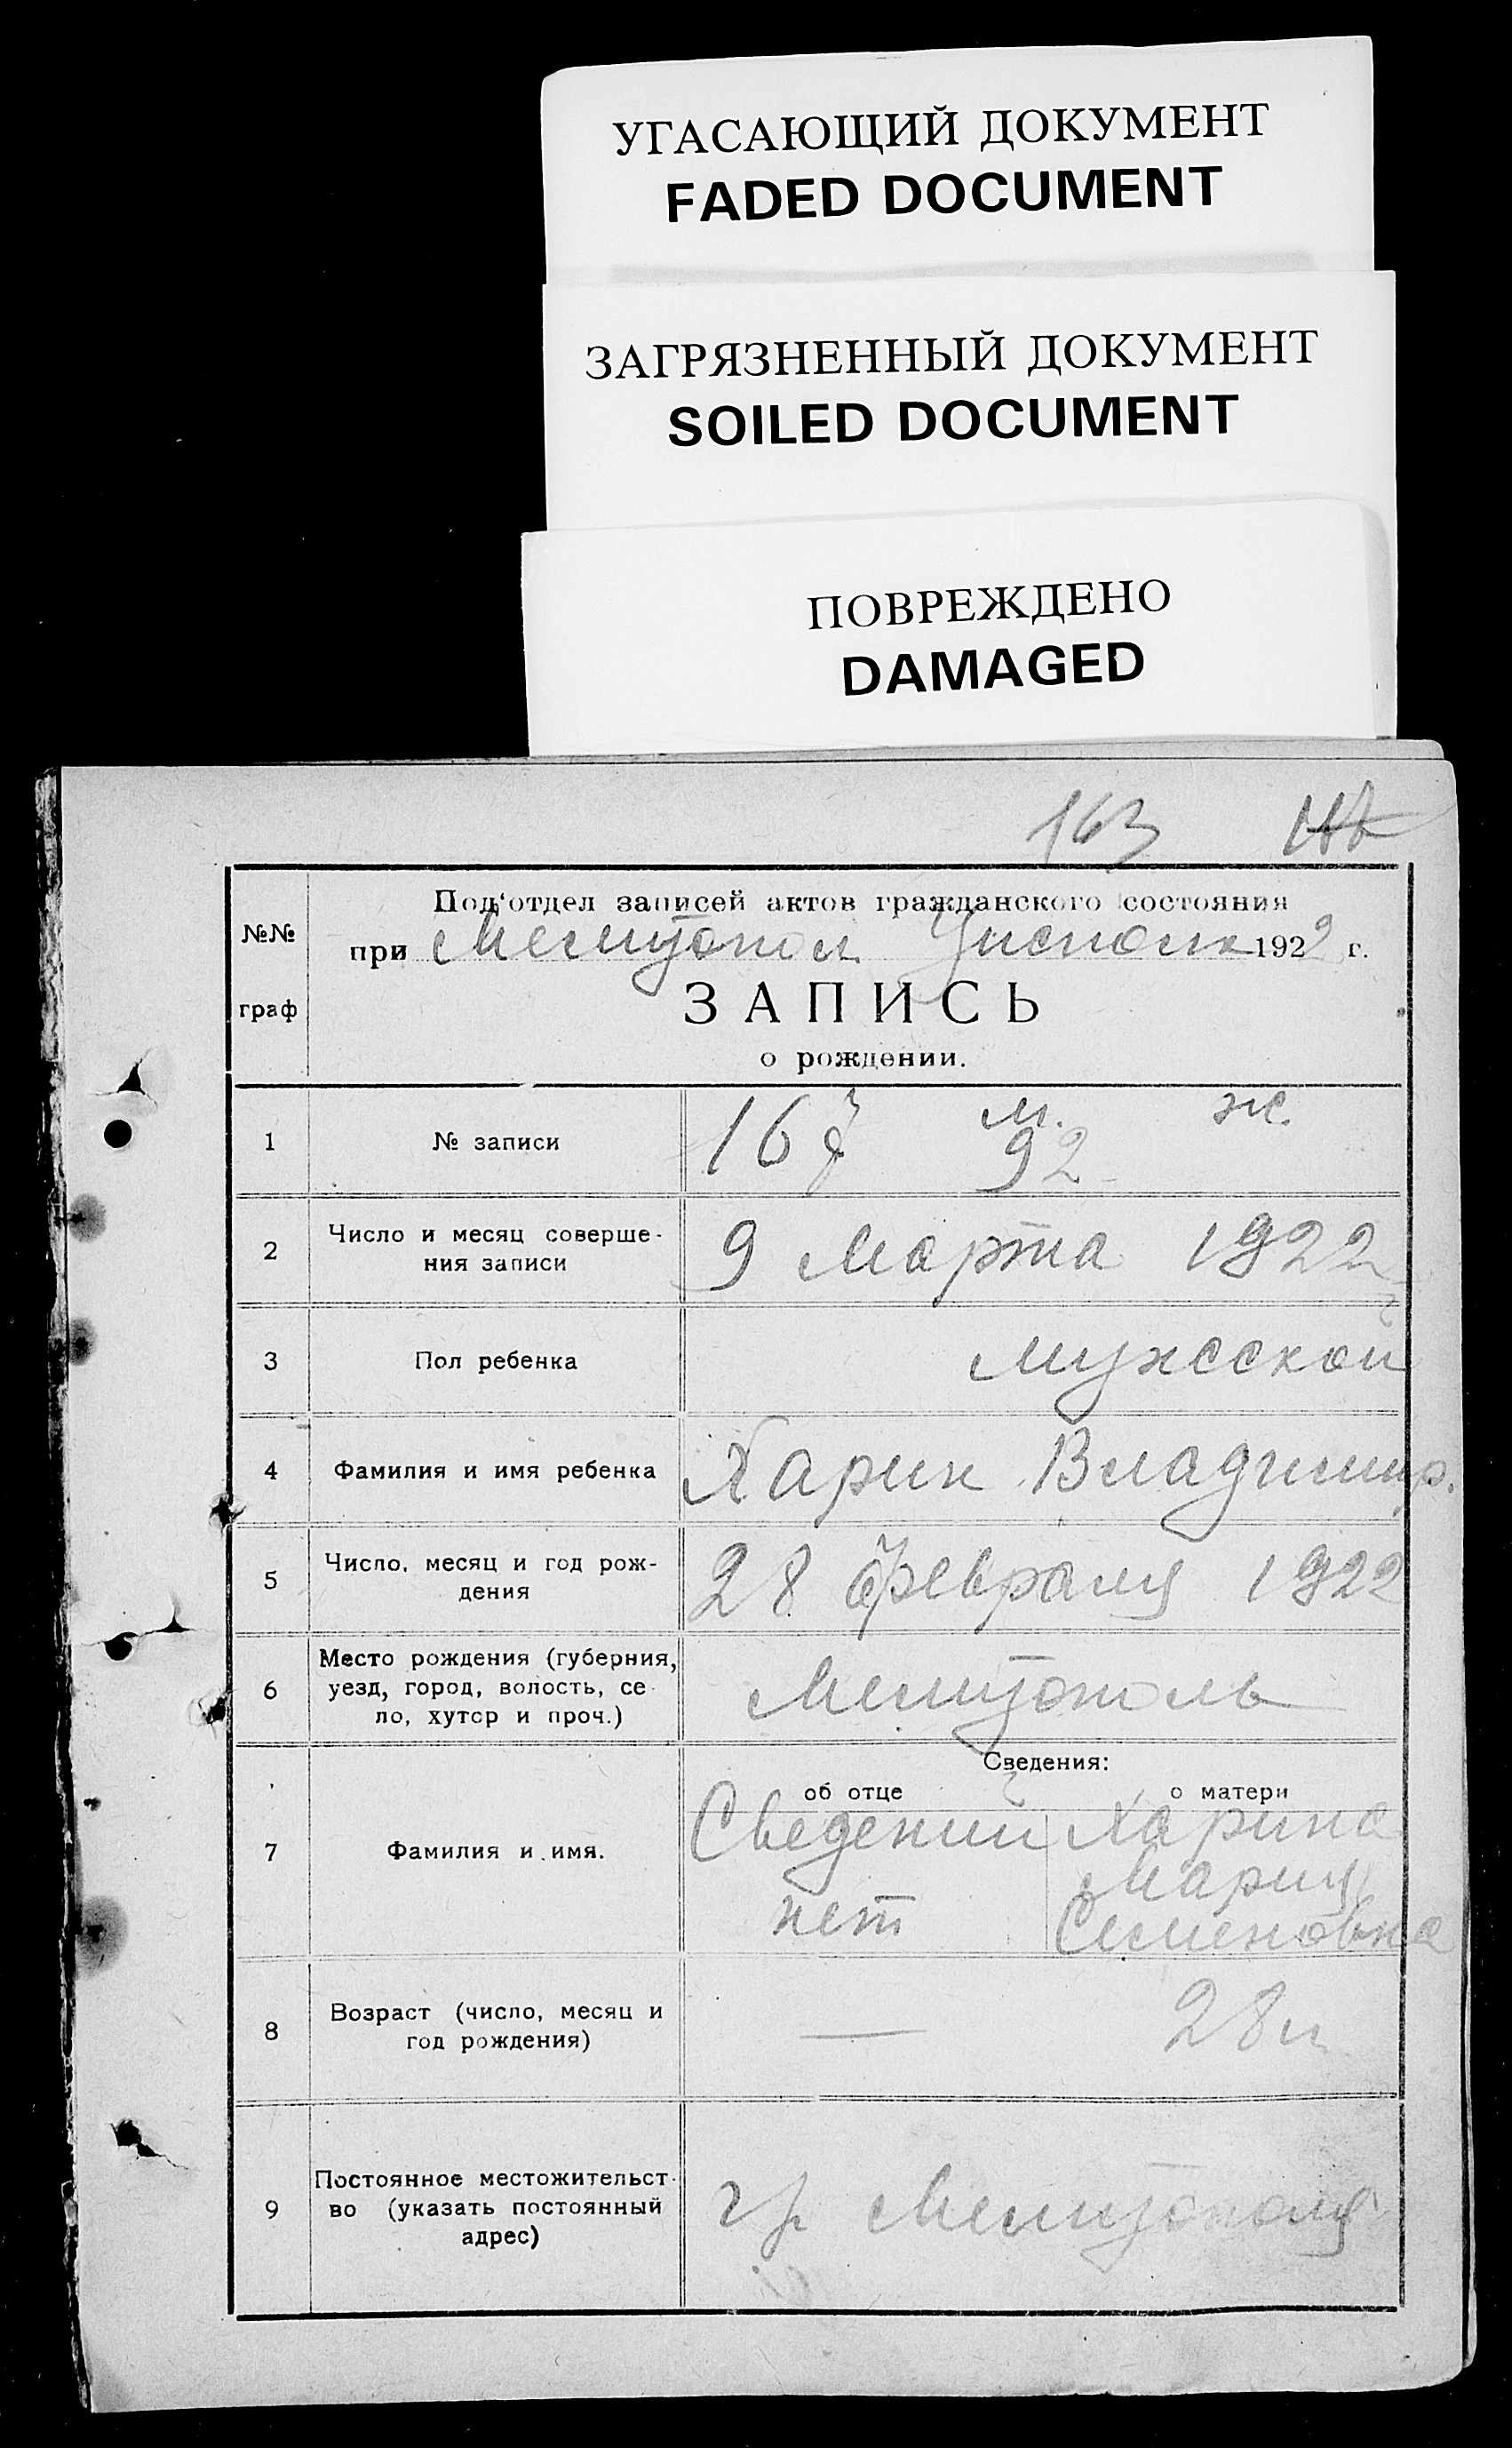 УГАСАЮЩИЙ ДОКУМЕНТ
FADED DOCUMENT
ЗАГРЯЗНЕННЫЙ ДОКУМЕНТ
SOILED DOCUMENT
ПОВРЕЖДЕНО
DAMAGED
163
№№ граф
Под'отдел записей актов гражданского состояния
при Мелитопол Уисполк 1922 г.
ЗАПИСЬ
о рождении.
1 № записи 163 м. 92 ж.
2 Число и месяц соверше-
ния записи 9 Марта 1922
3 Пол ребенка мужской
4 Фамилия и имя ребенка Харин Владимир.
5 Число, месяц и год рож-
дения 28 февраля 1922
6 Место рождения (губерния,
уезд, город, волость, се-
ло, хутор и проч.) Мелитополь
Сведения:
об отце о матери
7 Фамилия и имя. Сведений Харина
Мария
нет Семеновна
8 Возраст (число, месяц и
год рождения) — 28 л
9 Постоянное местожительст-
во (указать постоянный
адрес) гр Мелитополя